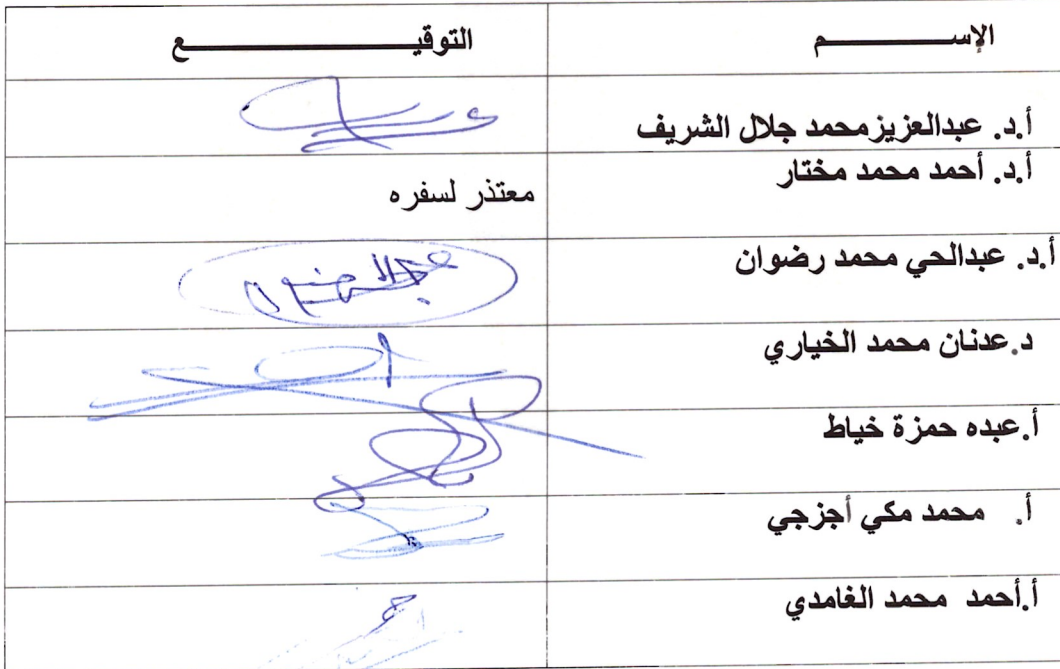 الإســـــــــم التوقيـــــــــــــــــــــع
أ.د. عبدالعزيزمحمد جلال الشريف
أ.د. أحمد محمد مختار معتذر لسفره
أ.د. عبدالحي محمد رضوان
د.عدنان محمد الخياري
أ.عبده حمزة خياط
أ. محمد مكي أجزجي
أ.أحمد محمد الغامدي